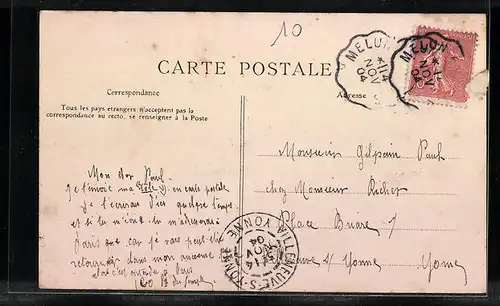 10
MELUN
14
NOV
04
MELUN
14
NOV
04
CARTE POSTALE
Correspondance
Adresse
Tous les pays étrangers n'acceptent pas la
correspondance au recto, se renseigner à la Poste
Mon cher Paul
Je t'envoie ma tête en carte postale
je t'écrirai d'ici quelque temps
et si tu m'écris tu m'adresseras
Paris car je vais peut-être
retourner dans mon ancienne
Monsieur Gilpain Paul
chez Monsieur Richer
Place Briare 7
s/ Yonne Yonne
VILLENEUVE-S-YONNE
YONNE
14
NOV
04